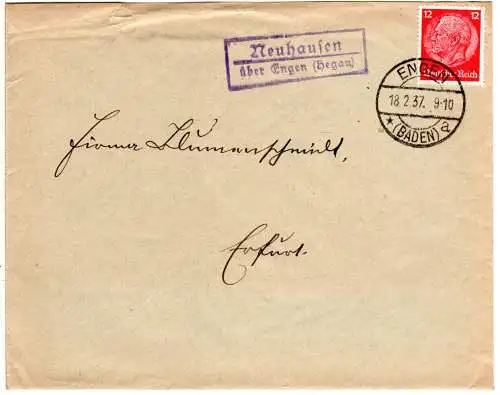 Neuhausen
über Engen (Hegau)
12 12
Deutsches Reich
ENGEN
18.2.37. 9-10
* (BADEN) a
Firma Blumenschmidt,
Erfurt.